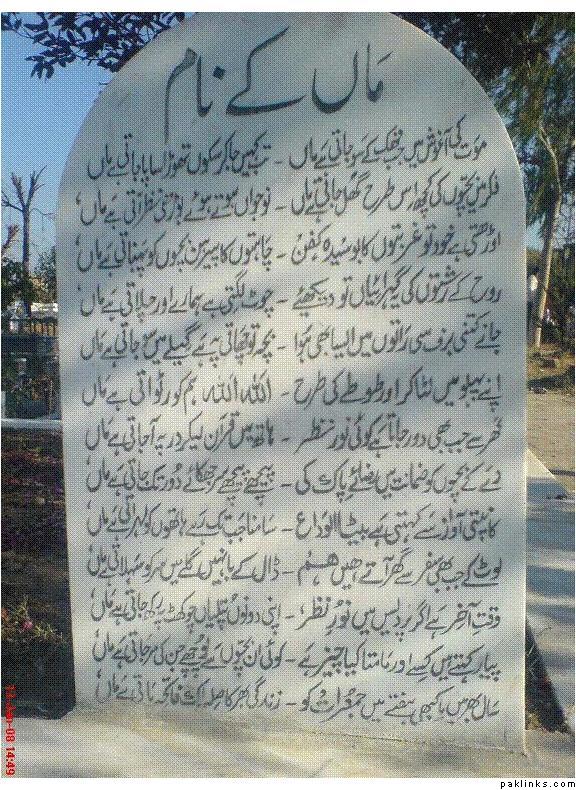 ماں کے نام
موت کی آغوش میں جب تھک کے سو جاتی ہے ماں - تب کہیں جا کر سکوں تھوڑا سا پا جاتی ہے ماں
فکر میں بچّوں کی کچھ اس طرح گھل جاتی ہے ماں - نوجواں ہوتے ہوئے بوڑھی نظر آتی ہے ماں
اوڑھتی ہے خود تو غربتوں کا بوسیدہ کفن - چاہتوں کا پیرہن بچوں کو پہناتی ہے ماں
روح کے رشتوں کی یہ گہرائیاں تو دیکھیئے - چوٹ لگتی ہے ہمارے اور چلاتی ہے ماں
جانے کتنی برف سی راتوں میں ایسا بھی ہوا - بچہ تو چھاتی پہ ہے گیلے میں سو جاتی ہے ماں
اپنے پہلو میں لٹا کر اور طوطے کی طرح - اللہ اللہ ہم کو رٹواتی ہے ماں
گھر سے جب بھی دور جاتا ہے کوئی نور نظر - ہاتھ میں قرآن لیکر در پہ آ جاتی ہے ماں
دے کے بچوں کو ضمانت میں رضائے پاک کی - پیچھے پیچھے سر جھکائے دور تک جاتی ہے ماں
کانپتی آواز سے کہتی ہے بیٹا الوداع - سامنا جب تک رہے ہاتھوں کو لہراتی ہے ماں
لوٹ کے جب بھی سفر سے گھر آتے ہیں ہم - ڈال کے بانہیں گلے میں سر کو سہلاتی ہے ماں
وقت آخر ہے اگر پردیس میں نور نظر - اپنی دونوں پتلیاں چوکھٹ پہ رکھ جاتی ہے ماں
پیار کہتے ہیں کسے اور مامتا کیا چیز ہے - کوئی ان بچّوں سے پوچھے جن کی مر جاتی ہے ماں
سال بھر میں یا کبھی ہفتے میں جمعرات کو - زندگی بھر کا صلہ اک فاتحہ پاتی ہے ماں
14:49
paklinks.com